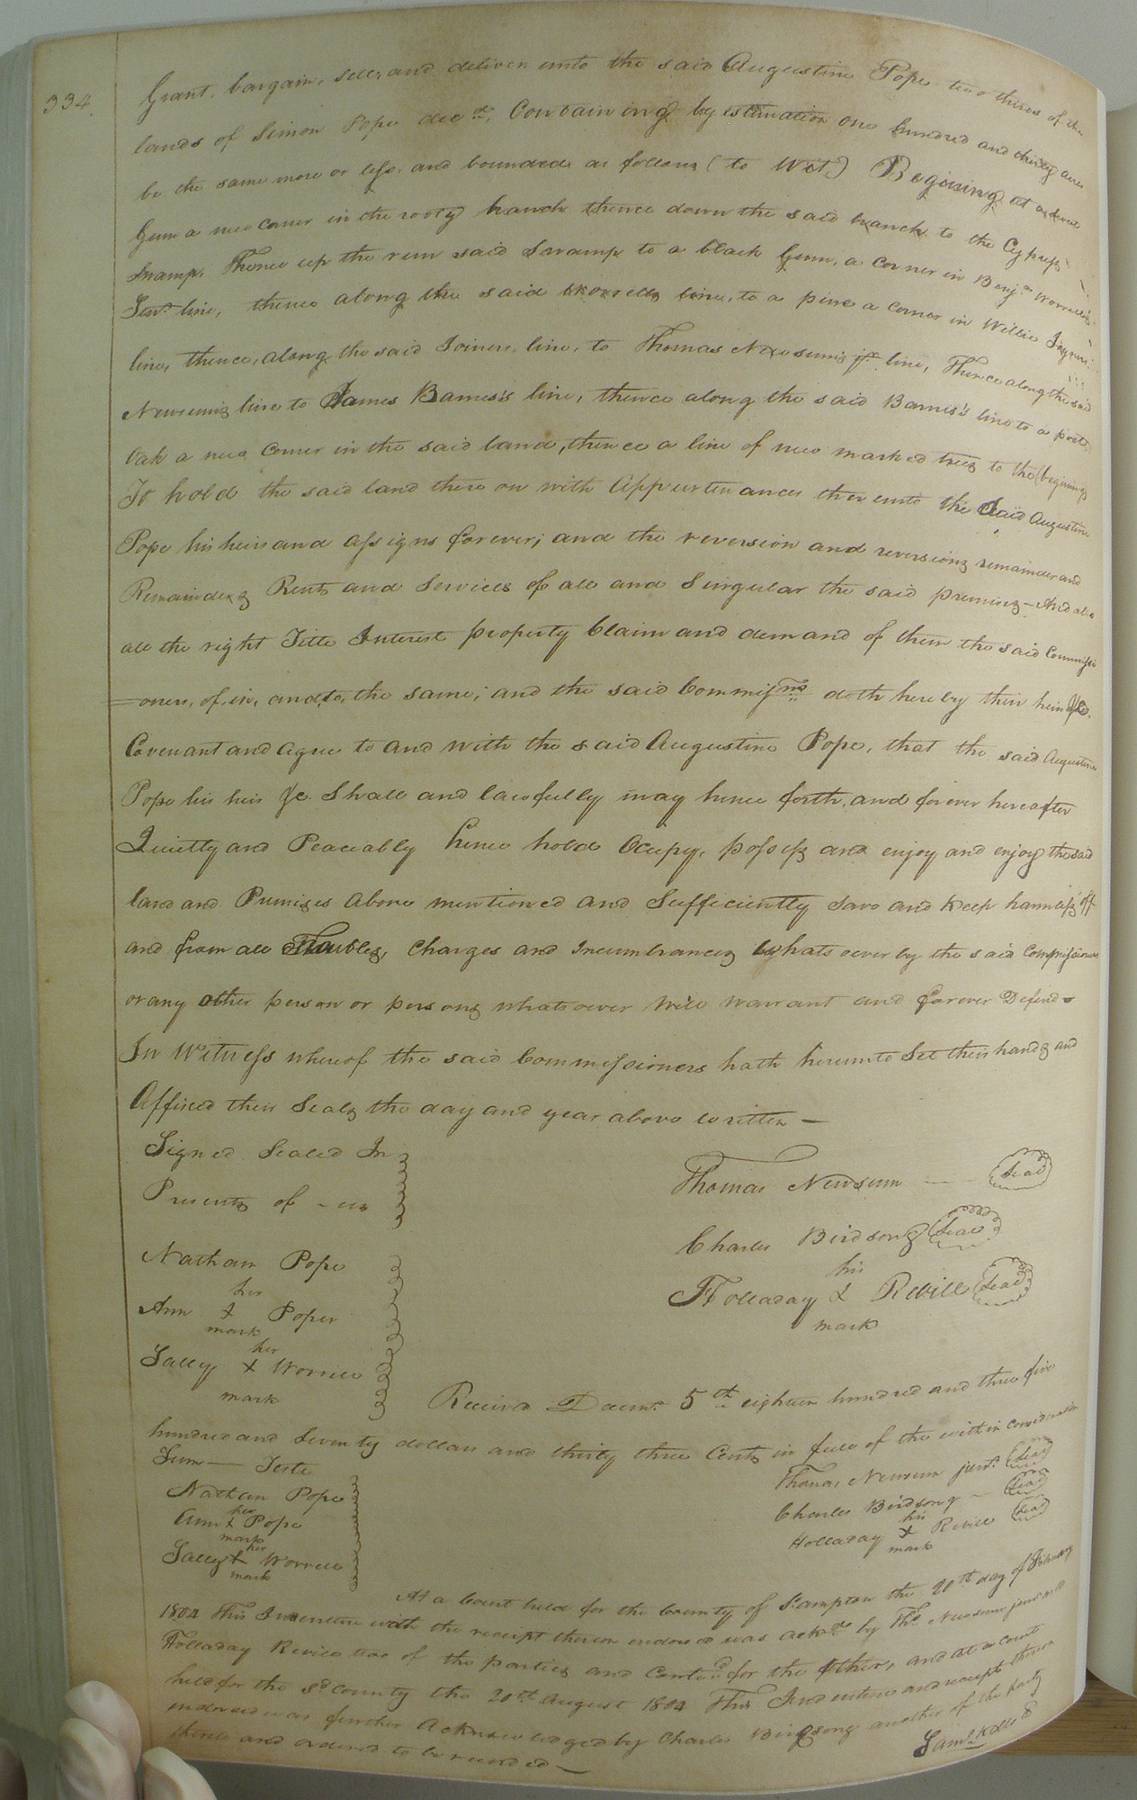 334.
Grant, bargain, sell, and deliver unto the said Augustine Pope two thirds of the
lands of Simon Pope decd. Containing by estimation one hundred and thirty acres
be the same more or less and bounded as follows (to Wit) Begining at a
Gum a new corner in the rooty branch thence down the said branch to the Cypress
Swamp. Thence up the run said Swamp to a black Gum, a corner in Benjn. Worrells
Senr. line, thence along the said Worrells line, to a pine a corner in Willie Joyner
line, thence, along the said Joiners line, to Thomas Newsums jr. line, Thence along the said
Newsums line to James Barnes's line, thence along the said Barnes's line to a post
Oak a new corner in the said land, thence a line of new marked trees to the begining
To hold the said land there on with Appurtenances there unto the Said Augustine
Pope his heirs and assigns forever; and the reversion and reversions remainder and
Remainders Rents and Services of all and Singular the said premises – And also
all the right Title Interest property Claim and demand of them the said Commissi
=oners, of, in, and, to, the same; and the said Commissrs. doth hereby their heirs &c.
Covenant and agree to and with the said Augustine Pope, that the said Augustine
Pope his heirs &c Shall and lawfully may hence forth, and forever hereafter
Quietly and Peaceably hence hold Occupy, possess and enjoy and enjoy the said
land and Premises above mentioned and Sufficiently Save and keep harmless off
and from all Troubles, Charges and Incumbrances Whatsoever by the said Commissioners
or any other person or persons whatsoever Will warrant and forever Defend –
In Witness whereof the said Commissioners hath hereunto Set their hands and
Affixed their Seals the day and year above written –
Signed Sealed In
Presents of – us
Thomas Newsum (Seal)
Charles Birdsong (Seal)
Nathan Pope
his
Holladay X Revill (Seal)
mark
her
Ann X Pope
mark
her
Sally X Worrell
mark
Received Decemr. 5th eighteen hundred and three five
hundred and Seventy dollars and thirty three Cents in full of the within consideration
Sum — Teste
Thomas Newsum junr. (Seal)
Nathan Pope
Charles Birdsong – (Seal)
her
Ann X Pope
mark
his
Holladay X Revill (Seal)
mark
her
Sally X Worrell
mark
At a Court held for the County of Sampton the 20th day of February
1804 This Indenture with the receipt thereon endorsed was ackd. by Thos. Newsum junr. and
Holladay Revill two of the parties and Contd. for the other, and at a Court
held for the sd. County the 20th August 1804 This Indenture and receipt thereon
indorsed was further Acknowledged by Charles Birdsong another of the party
thereto and ordered to be recorded –
Saml. Kello